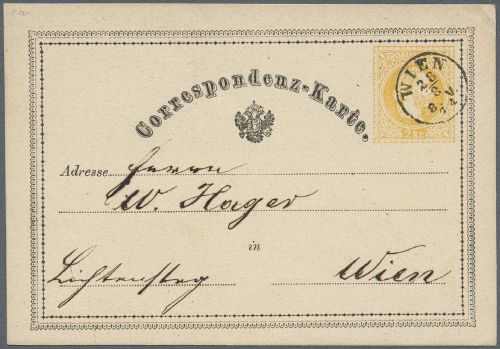 Correspondenz-Karte.
WIEN
28
8
8 V.
74
2 kr.
Adresse Herrn
W. Hager
in
Lichtensteg Wien